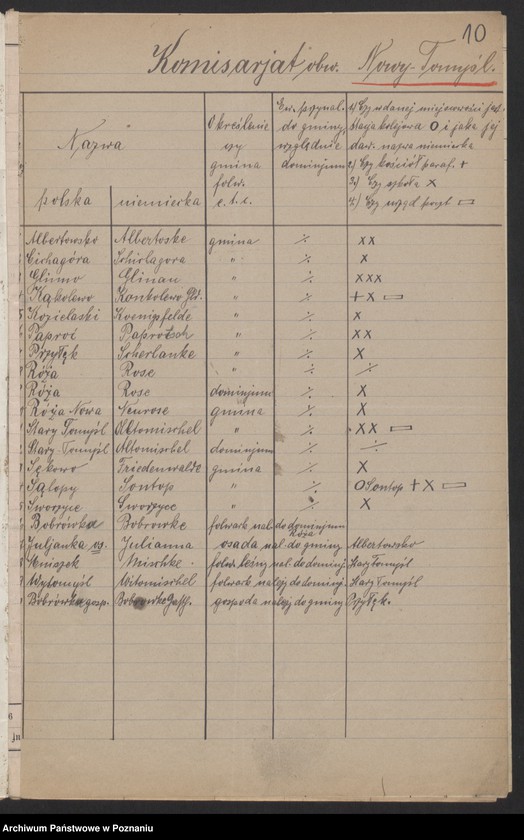 10
Komisarjat obw. Nowy-Tomyśl.
Nazwa
polska niemiecka
Określenie czy gmina folw. e.t.c.
Ew. przynal. do gminy, względnie dominjum
1) Czy w danej miejscowości jest
stacja kolejowa O i jaka jej
daw. nazwa niemiecka
2) Czy kościół paraf. +
3) Czy szkoła x
4) Czy urząd poczt ▭
Albertowsko Albertoske gmina ./. x x
Cichagóra Schirlagora " ./. x
Glinno Glinau " ./. x x x
Kąkolewo Konkolewo Gld. " ./. + x ▭
Kozielaski Koenigsfelde " ./. x
Paproć Paprotsch " ./. x x
Przyłęk Scherlanke " ./. x
Róża Rose " ./. ./.
Róża Rose dominjum ./. x
Róża Nowa Neurose gmina ./. x
Stary Tomyśl Altomischel " ./. x x ▭
Stary-Tomyśl Altomischel dominjum ./. ./.
Sękowo Friedenwalde gmina ./. x
Sątopy Sontop " ./. O Sontop + x ▭
Sworzyce Sworzyce " ./. x
Bobrówka Bobrowke folwark nal. do dominjum Róża
Juljanka os. Julianna osada nal. do gminy Albertowsko
Mniszek Mischke folw. leśny nal. do dominj. Stary Tomyśl
Wytomyśl Witomischel folwark należy do dominj. Stary Tomyśl
Bobrówka gosp. Bobrowke Gasth. gospoda należy do gminy Przyłęk.
6
Archiwum Państwowe w Poznaniu